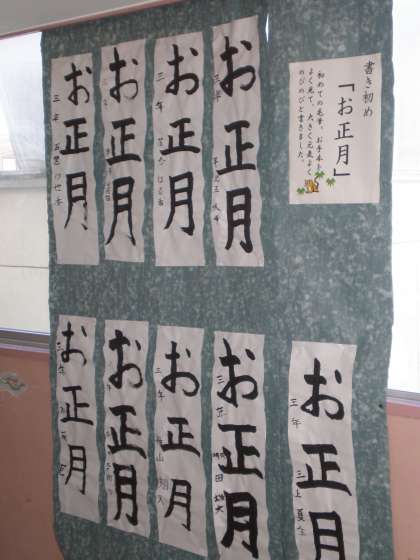 書き初め
「お正月」
初めての毛筆。お手本を
よく見て、大きく元気よく
のびのびと書きました。
お正月
三年
お正月
三年
お正月
三年
お正月
三年
お正月
三年 三上
お正月
三年
お正月
三年
お正月
三年
お正月
三年